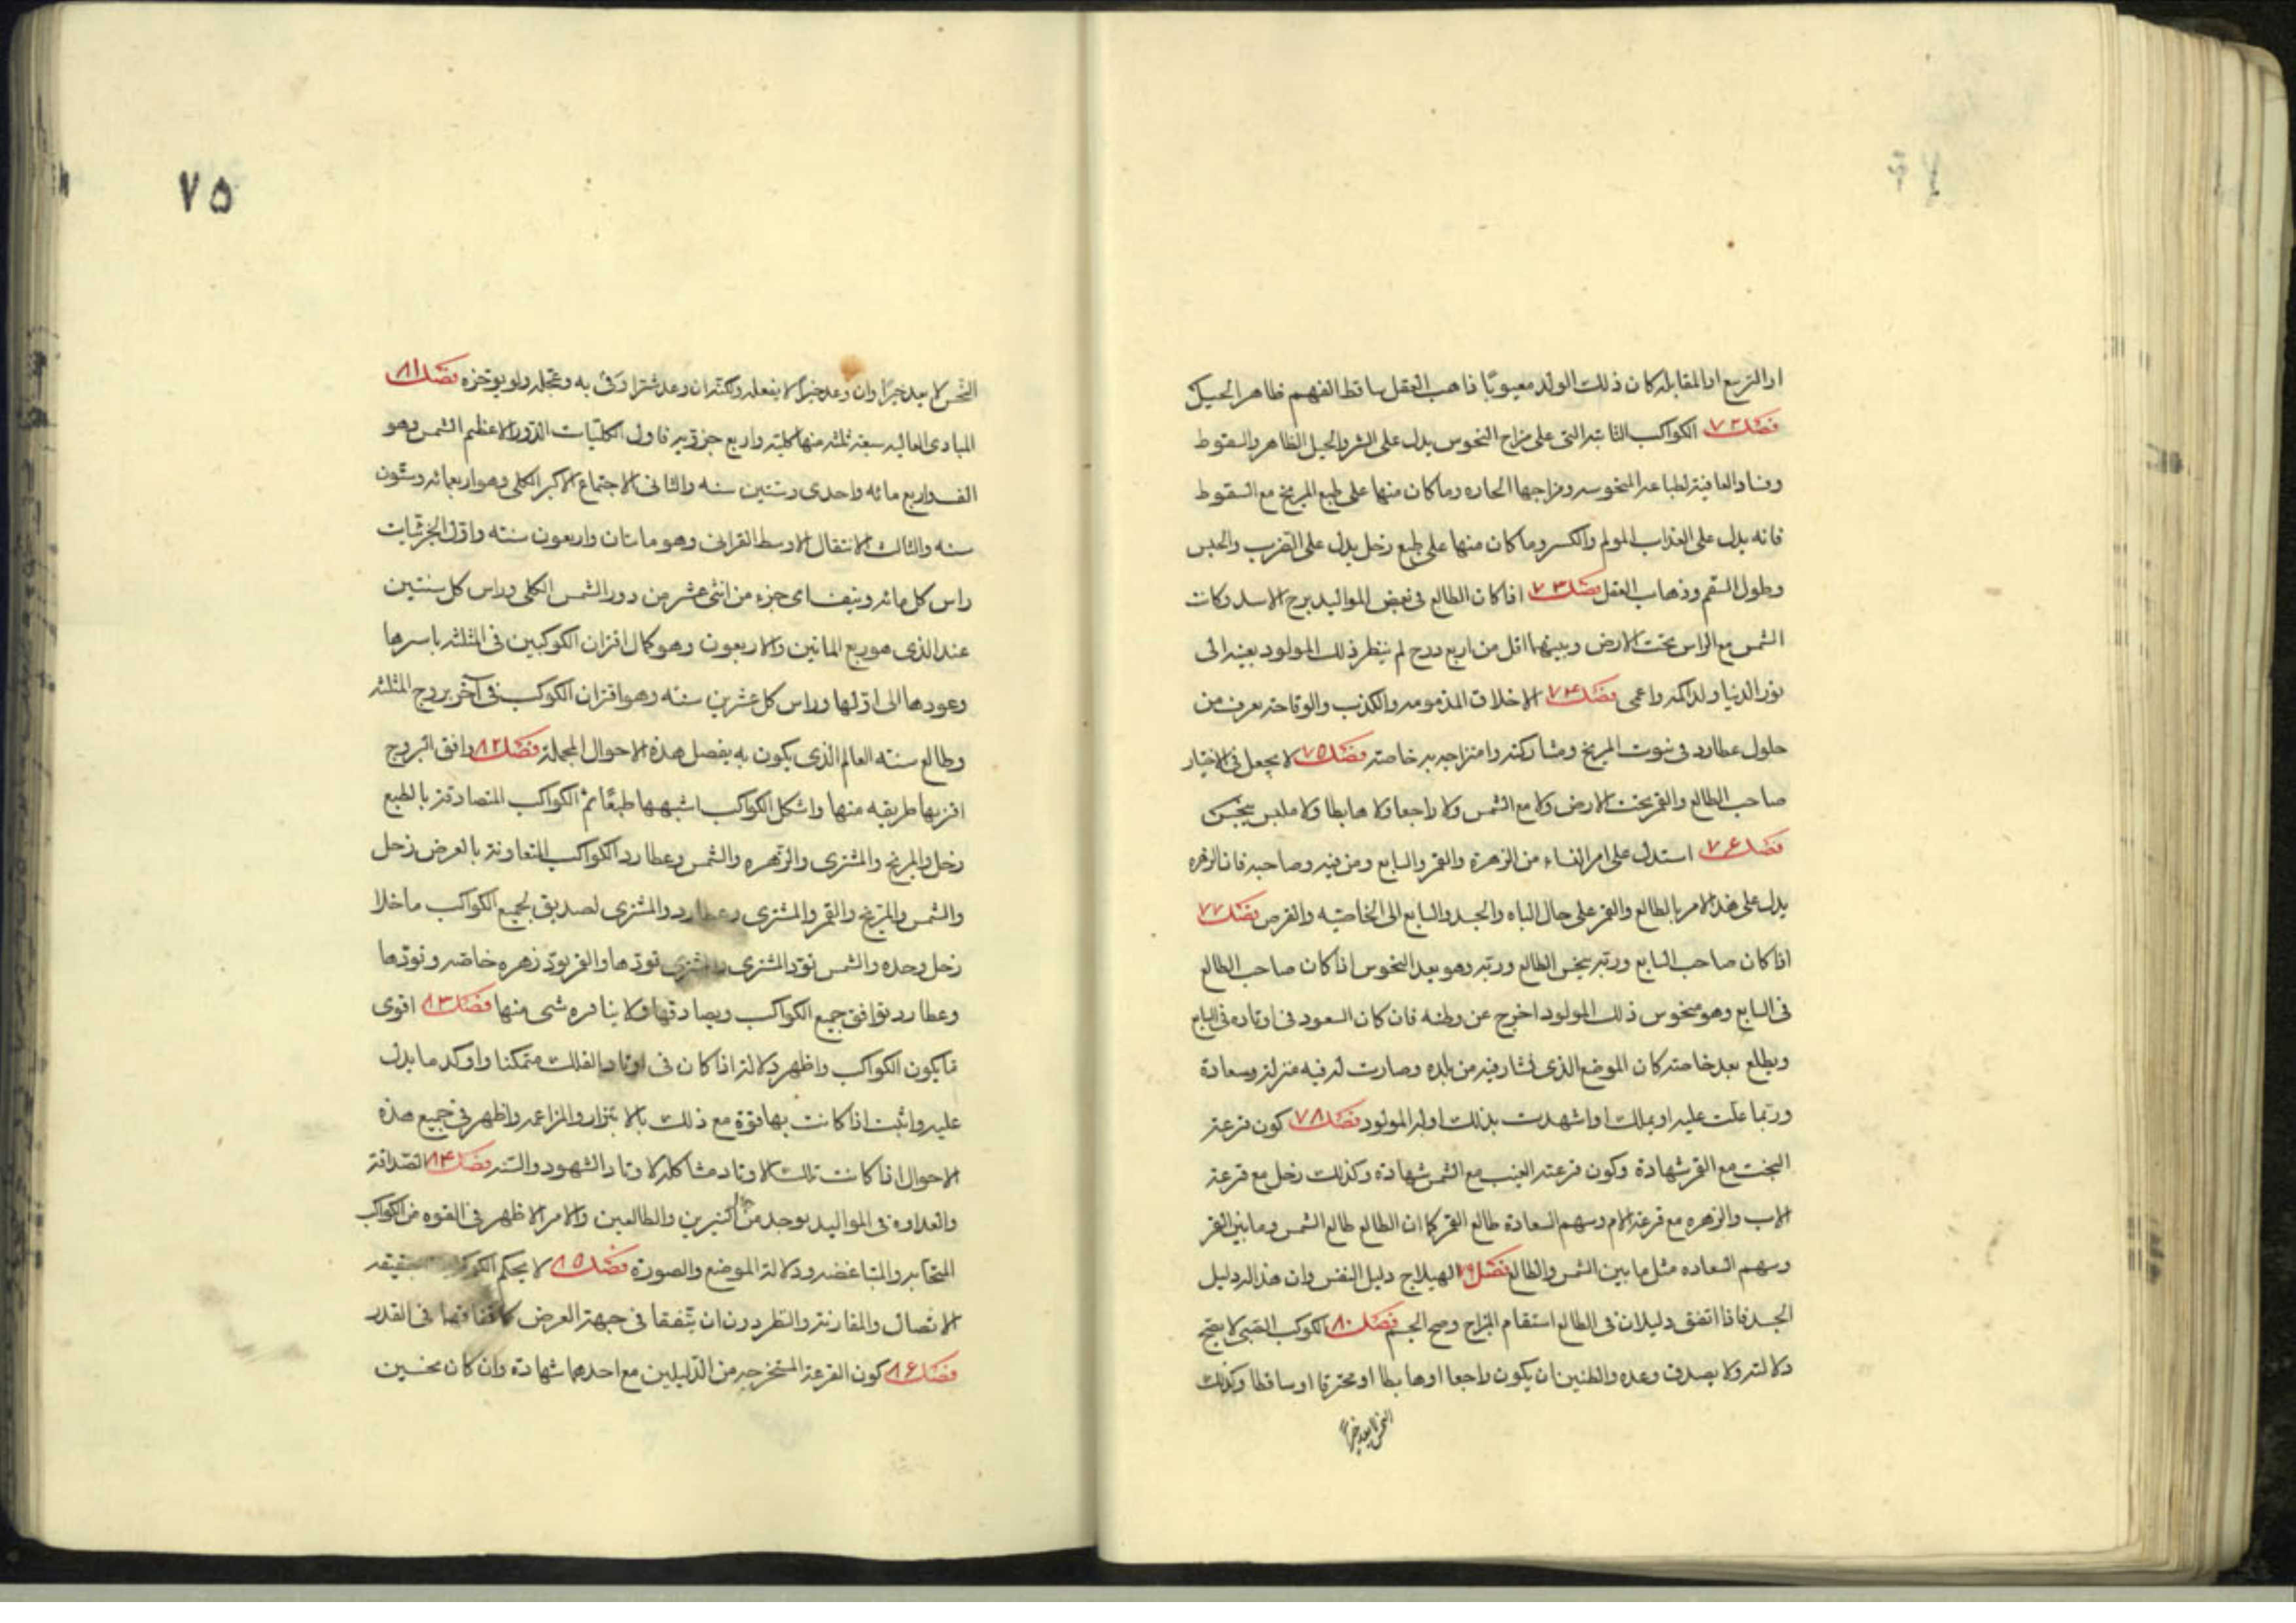 او التربيع او المقابله كان ذلك الولد معيوبًا ذاهب العقل ساقط الفهم ظاهر الحبل
فصل ٧٢ الكواكب الثابته التى على مزاج النحوس يدل على الشر والحبل الظاهر والسقوط
وفساد العافية لطباعه المنحوسه ومزاجها الحاره وما كان منها على طبع المريخ مع السقوط
فانه يدل على العذاب المولم والكسر وما كان منها على طبع زحل يدل على الضرب والحبس
وطول السقم وذهاب العقل فصل ٧٣ اذا كان الطالع فى بعض المواليد برج الاسد وكانت
الشمس مع الراس تحت الارض وبينهما اقل من اربع درج لم ينظر ذلك المولود بعينه الى
نور الدنيا ولد اكمه واعمى فصل ٧۴ الاخلاق المذمومه والكذب والوقاحه يعرف من
حلول عطارد فى بيوت المريخ ومشاركته وامتزاجه به خاصته فصل ٧۵ لا يجعل فى الاختيار
صاحب الطالع والقمر تحت الارض ولا مع الشمس ولا راجعا ولا هابطا ولا ملبس بنحس
فصل ٧۶ استدل على امر النساء من الزهرة والقمر والسابع ومن فيه وصاحبه فان الزهره
يدل على هذا الامر بالطالع والقمر على حال الباه والجسد والسابع الى الخاصيه والفرص فصل ٧٧
اذا كان صاحب السابع وربه بنحس الطالع وربه وهو بعد النحوس اذا كان صاحب الطالع
فى السابع وهو منحوس ذلك المولود اخرج عن وطنه فان كان السعود فى اوتاده فى السابع
ويطلع بعد خاصته كان الموضع الذى فيه من بلده وصارت له فيه منزلة وسعادة
وربما عليه او بملك او اشهدت بذلك اوله المولود فصل ٧٨ كون قرعة
البخت مع القمر شهادة وكون قرعة الغيب مع الشمس شهادة وكذلك زحل مع قرعة
الاب والزهره مع قرعة الام وسهم السعادة طالع القمر كما ان الطالع طالع الشمس وما بين القمر
وسهم السعاده مثل ما بين الشمس والطالع فصل ٧٩ الهيلاج دليل النفس وان هذا الدليل
الجسد فاذا اتفق دليلان فى الطالع استقام المزاج وصح الجسم فصل ٨٠ الكوكب لا ينجح
دلالته ولا يصدق وعده والظنين ان يكون راجعا او هابطا او محترقا او ساقطا وكذلك
النحس لا يعد خيرًا
٧۵
النحس لا يعد خيرًا وان وعد خيرًا لا يفعله ولكنه ان وعد شرا وفى به وعجله ولم يوخره فصل ٨١
المبادى العاليه سبعة ثلثه منها كلية واربع جزؤيه فاول الكليات الدور الاعظم الشمس وهو
الف واربع مائه واحدى وستين سنه والثانى الاجتماع الاكبر الكلى وهو اربعمائه وستون
سنه والثالث الانتقال الاوسط القرانى وهو ماتان واربعون سنته واول الجزئيات
راس كل مائه ونيف اى جزء من اثنى عشر من دور الشمس الكلى وراس كل ستين
عند الذى هو ربع الماتين والاربعون وهو كمال اقتران الكوكبين فى المثلثه باسرها
وعودها الى اولها وراس كل عشرين سنه وهو اقتران الكوكب فى آخر بروج المثلثه
وطالع سنته العالم الذى يكون به يفصل هذه الاحوال المجملة فصل ٨٢ وافق البروج
اقربها طريقه منها واشكل الكواكب اشبهها طبعًا ثم الكواكب المتصادقة بالطبع
زحل والمريخ والمشترى والزهره والشمس وعطارد الكواكب المتعاونة بالعرض زحل
والشمس والمريخ والقمر والمشترى وعطارد والمشترى لصديق لجميع الكواكب ماخلا
زحل وحده والشمس تود المشترى والمشترى تودها والقمر يود زهره خاصه وتودها
وعطارد توافق جميع الكواكب ويصادقها ولا ينافره شى منها فصل ٨٣ اقوى
مايكون الكواكب واظهر دلالة اذا كان فى اوتاد الفلك متمكنا واوكد ما يدل
عليه واثبت اذا كانت بها قوة مع ذلك بالابتزاز والمزاعمه واظهر فى جميع هذه
الاحوال اذا كانت تلك الاوتاد مشاكله لاوتاد الشهود والسنه فصل ٨۴ الصداقة
والعداوه فى المواليد يوجد من النيرين والطالعين والامر الاظهر فى القوه من الكواكب
المتحابه والمتباغضه ودلالة الموضع والصورة فصل ٨۵ لا يحكم بحقيقه
الاتصال والمقارنة والنظر دون ان يتفقا فى جهة العرض كاتفاقهما فى القدر
فصل ٨۶ كون القرعة المستخرجه من الدليلين مع احدهما شهادة وان كان نحسين